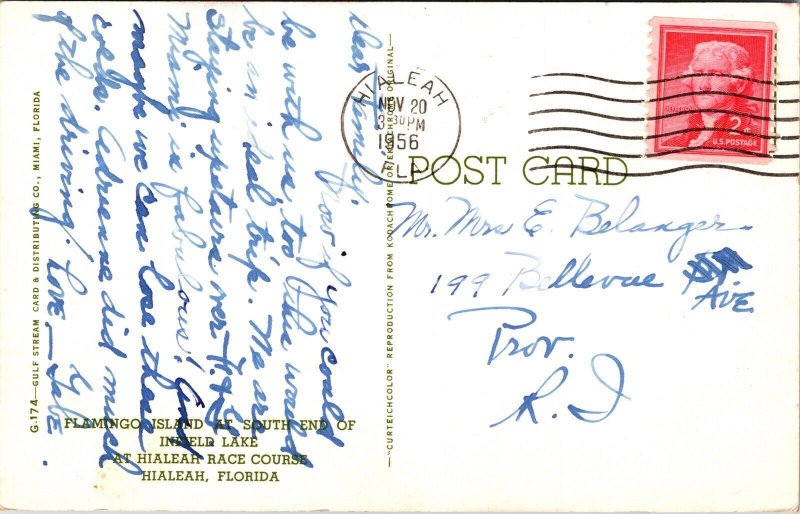 Dear Family,
Now if you could
be with us, too this would
be an ideal trip. We are
staying upstairs over
Miami is fabulous! And
maybe we can lose those
Adrienne did much
of the driving. Love,
G-174—GULF STREAM CARD & DISTRIBUTING CO., MIAMI, FLORIDA
FLAMINGO ISLAND AT SOUTH END OF
INFIELD LAKE
AT HIALEAH RACE COURSE
HIALEAH, FLORIDA
—"CURTEICHCOLOR" REPRODUCTION FROM KODACHROME OR EKTACHROME ORIGINAL—
HIALEAH
NOV 20
3 30 PM
1956
FLA
2¢
U.S. POSTAGE
POST CARD
Mr. Mrs E. Belanger
199 Bellevue
Ave
Prov.
R.I